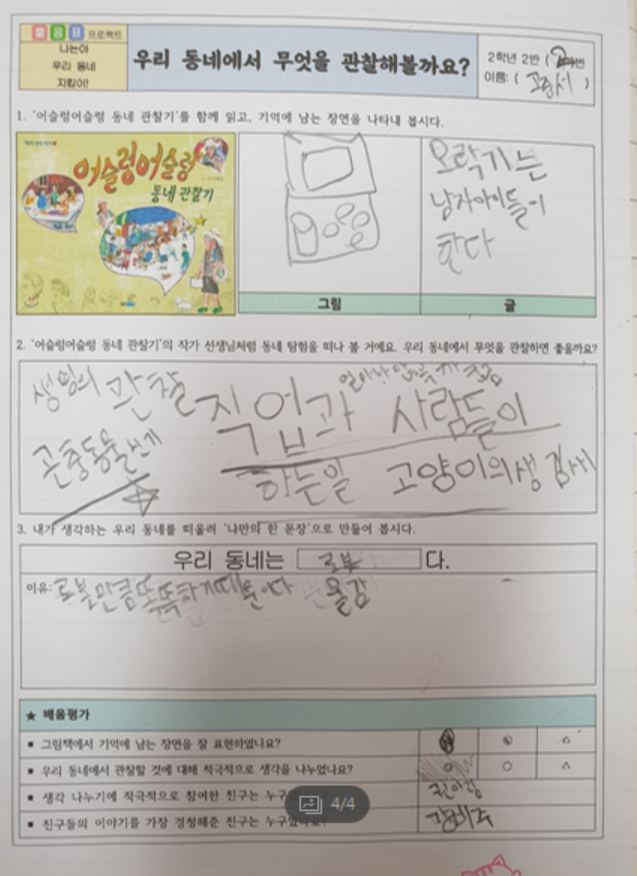 물음표 프로젝트
나는야
우리 동네
지킴이!
우리 동네에서 무엇을 관찰해볼까요?
2학년 2반 ( 번
이름: ( )
1. '어슬렁어슬렁 동네 관찰기'를 함께 읽고, 기억에 남는 장면을 나타내 봅시다.
어슬렁어슬렁
동네 관찰기
오락기는
남자아이들이
한다
그림
글
2. '어슬렁어슬렁 동네 관찰기'의 작가 선생님처럼 동네 탐험을 떠나 볼 거예요. 우리 동네에서 무엇을 관찰하면 좋을까요?
생명의 관찰 직업과 사람들이
곤충동물 하는일 고양이의생김새
3. 내가 생각하는 우리 동네를 떠올려 '나만의 한 문장'으로 만들어 봅시다.
우리 동네는 로봇 다.
이유: 로봇만큼똑똑하기때문이다
★ 배움평가
▪ 그림책에서 기억에 남는 장면을 잘 표현하였나요? ◎ △
▪ 우리 동네에서 관찰할 것에 대해 적극적으로 생각을 나누었나요? ○ △
▪ 생각 나누기에 적극적으로 참여한 친구는 누구
▪ 친구들의 이야기를 가장 경청해준 친구는 누구였나요?
4/4